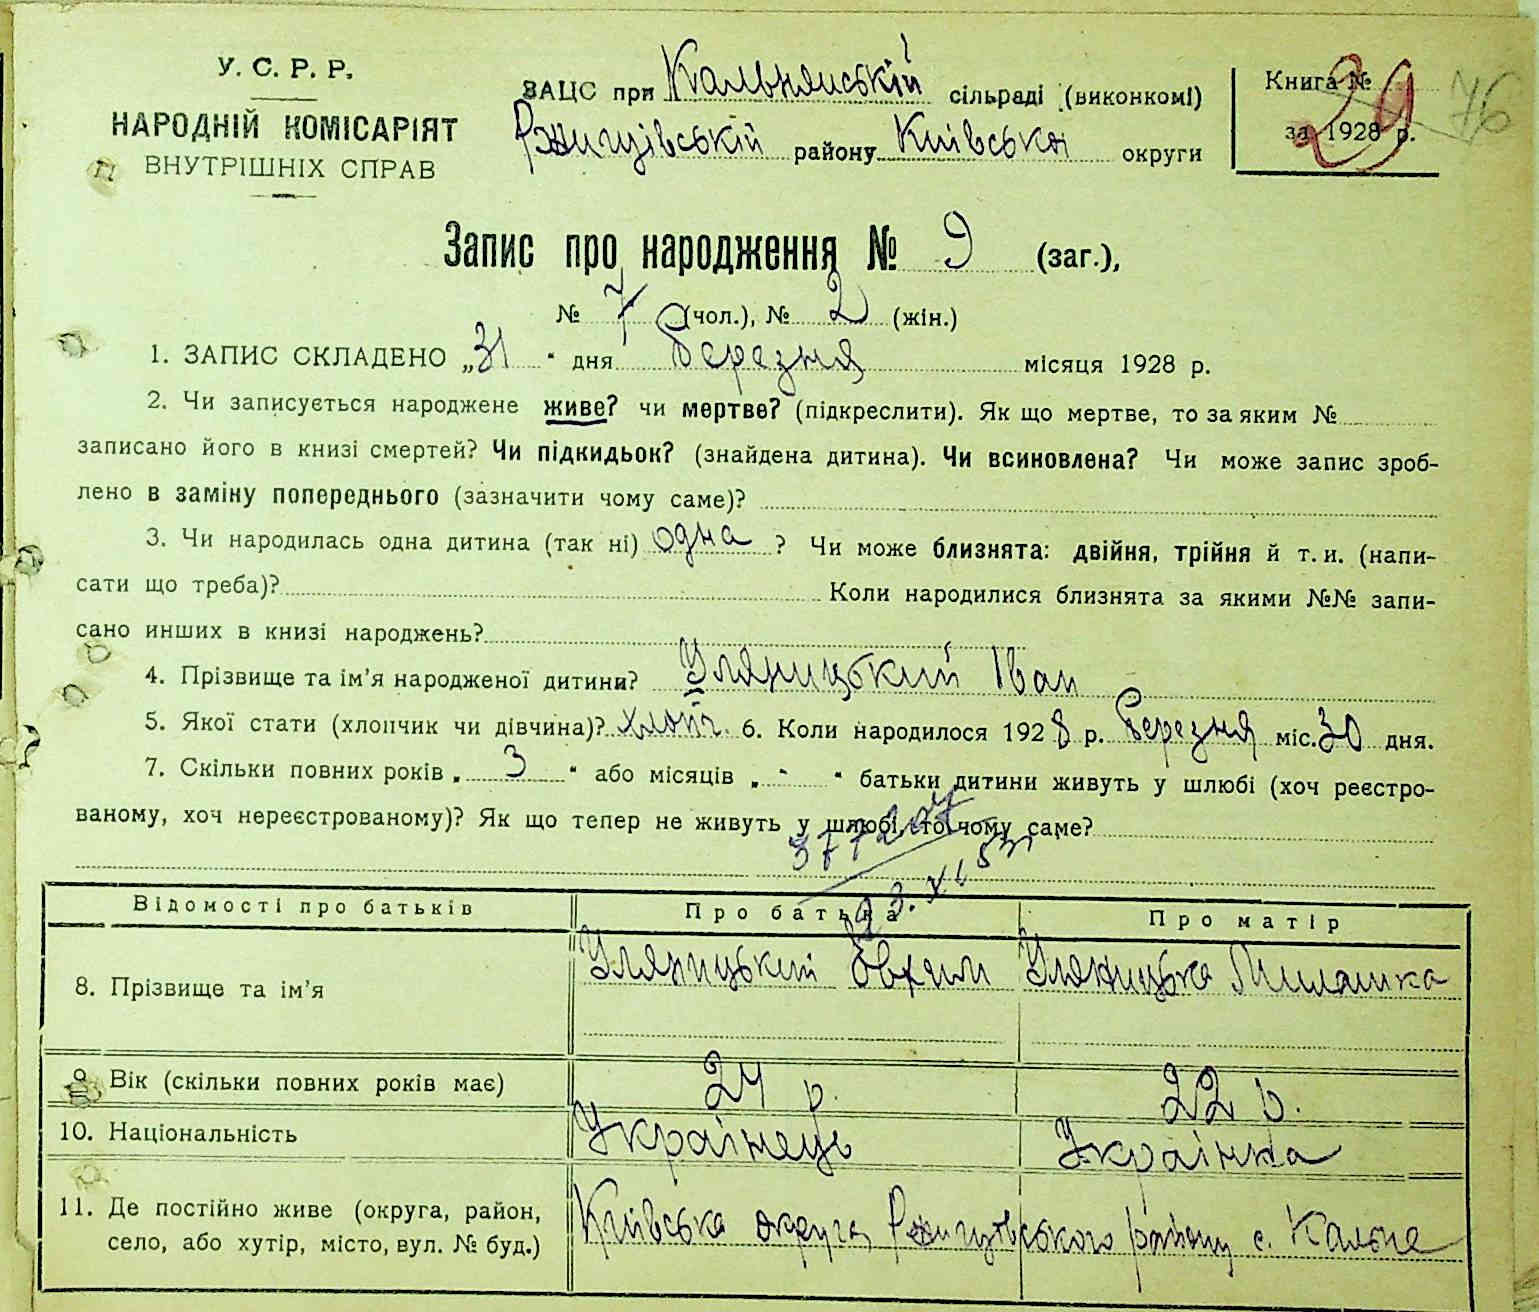 У. С. Р. Р.
НАРОДНІЙ КОМІСАРІЯТ
ВНУТРІШНІХ СПРАВ
ЗАЦС при Кальнянській сільраді (виконкомі)
Ржищівській району Київська округи
Книга № 29 76
за 1928 р.
Запис про народження № 9 (заг.),
№ 7 (чол.), № 2 (жін.)
1. ЗАПИС СКЛАДЕНО „31" дня Березня місяця 1928 р.
2. Чи записується народжене живе? чи мертве? (підкреслити). Як що мертве, то за яким №
записано його в книзі смертей? Чи підкидьок? (знайдена дитина). Чи всиновлена? Чи може запис зроб-
лено в заміну попереднього (зазначити чому саме)?
3. Чи народилась одна дитина (так ні) одна ? Чи може близнята: двійня, трійня й т. и. (напи-
сати що треба)? Коли народилися близнята за якими №№ запи-
сано инших в книзі народжень?
4. Прізвище та ім'я народженої дитини? Уляницький Іван
5. Якої стати (хлопчик чи дівчина)? хлопч. 6. Коли народилося 1928 р. Березня міс. 30 дня.
7. Скільки повних років „ 3 " або місяців „ - " батьки дитини живуть у шлюбі (хоч реєстро-
ваному, хоч нереєстрованому)? Як що тепер не живуть у шлюбі, то чому саме?
Відомості про батьків Про батька Про матір
8. Прізвище та ім'я Уляницький Овхим Уляницька Милашка
Вік (скільки повних років має) 24 р. 22 р.
10. Національність Українець Українка
11. Де постійно живе (округа, район, Київська округа Ржищівського району с. Кальне
село, або хутір, місто, вул. № буд.)